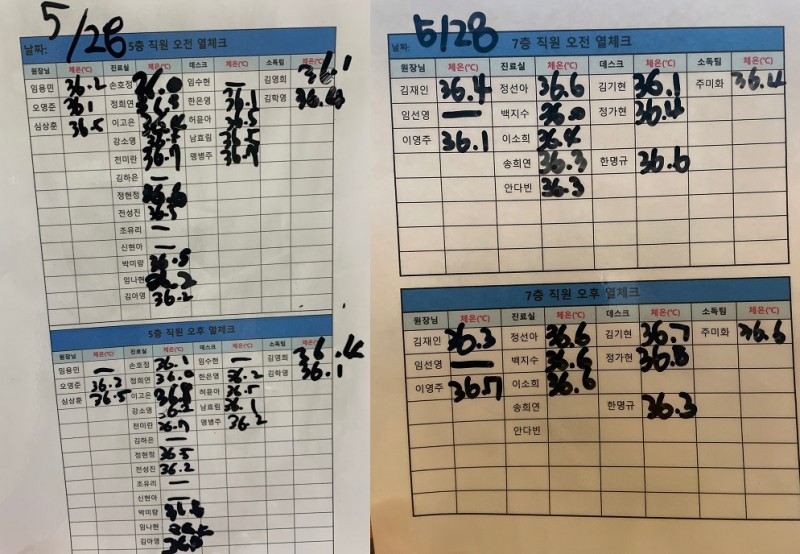 날짜: 5/28 5층 직원 오전 열체크
원장님 체온(℃) 진료실 체온(℃) 데스크 체온(℃) 소독팀 체온(℃)
임용민 36.2 손호정 36.0 임수현 — 김영희 36.1
오영준 36.1 정희연 한은영 36.1 김학영
심상훈 36.5 이고은 허윤아 36.5
강소영 36.5 남효림 36.5
전미란 36.7 맹병주 36.7
김하은 —
정현정 36.6
전성진 36.5
조유리 —
신현아 —
박미량 36.5
임나현
김아영 36.2
5층 직원 오후 열체크
원장님 체온(℃) 진료실 체온(℃) 데스크 체온(℃) 소독팀 체온(℃)
임용민 — 손호정 36.1 임수현 — 김영희
오영준 36.2 정희연 36.0 한은영 36.2 김학영 36.1
심상훈 36.5 이고은 36.8 허윤아 36.5
강소영 36.2 남효림 36.1
전미란 36.7 맹병주 36.2
김하은 —
정현정 36.5
전성진 36.2
조유리 —
신현아 —
박미량 36.8
임나현
김아영
날짜: 5/28 7층 직원 오전 열체크
원장님 체온(℃) 진료실 체온(℃) 데스크 체온(℃) 소독팀 체온(℃)
김재인 36.4 정선아 36.6 김기현 36.1 주미화 36.4
임선영 — 백지수 36.0 정가현 36.4
이영주 36.1 이소희 36.4
송희연 36.3 한명규 36.6
안다빈 36.3
7층 직원 오후 열체크
원장님 체온(℃) 진료실 체온(℃) 데스크 체온(℃) 소독팀 체온(℃)
김재인 36.3 정선아 36.6 김기현 36.7 주미화 36.6
임선영 — 백지수 36.6 정가현 36.8
이영주 36.7 이소희 36.6
송희연 한명규 36.3
안다빈